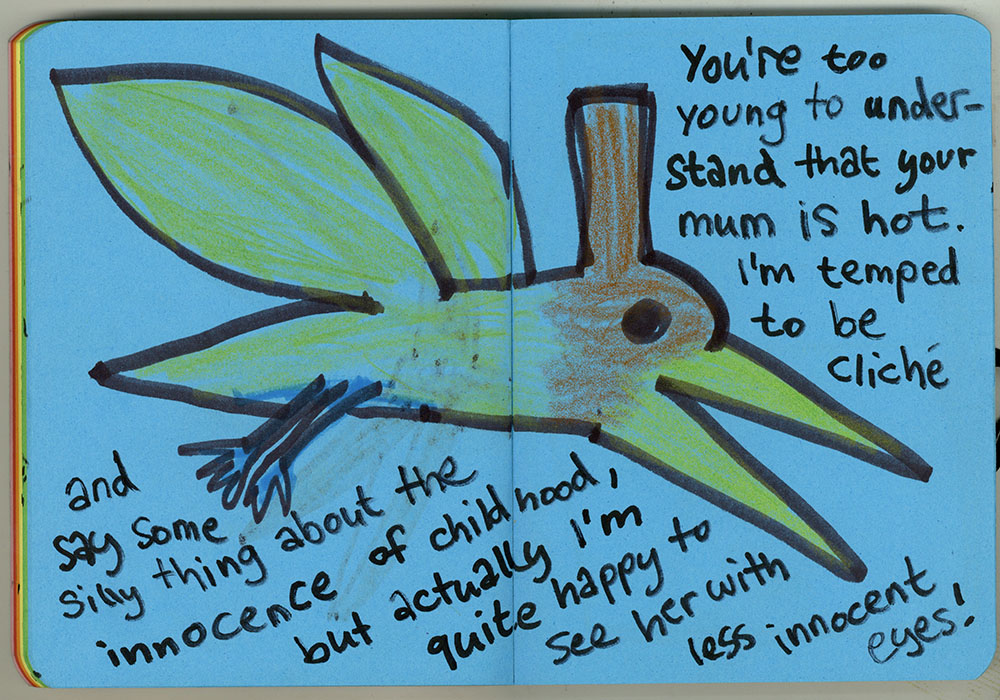 You're too
young to under-
stand that your
mum is hot.
I'm temped
to be
cliché
and
say some
silly thing about the
innocence of childhood,
but actually I'm
quite happy to
see her with
less innocent
eyes!